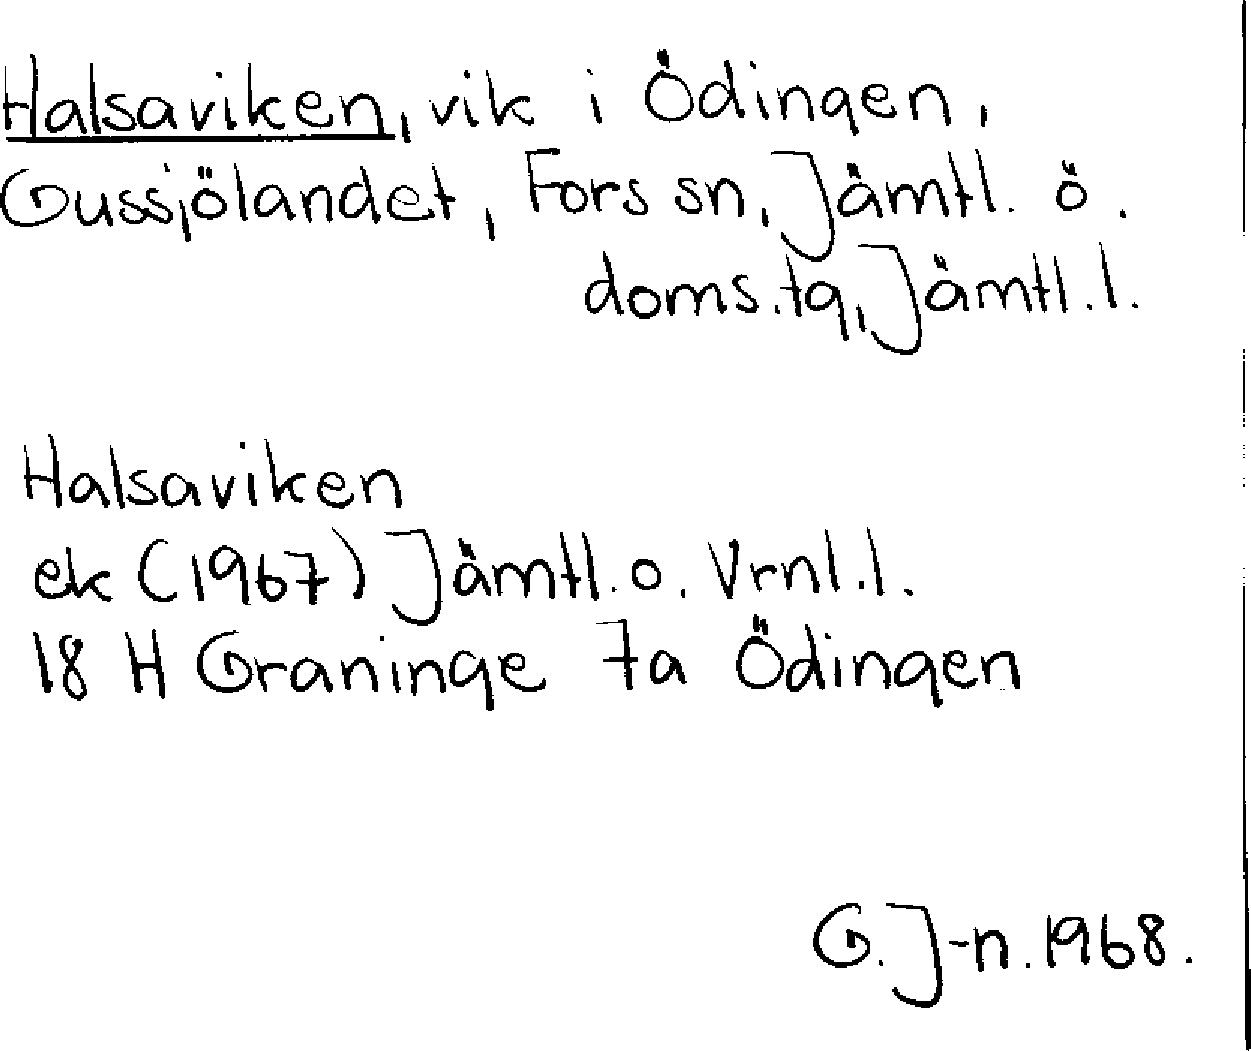 Halsaviken, vik i Ödingen,
Gussjölandet, Fors sn, Jämtl. ö.
doms.tg, Jämtl.l.
Halsaviken
ek (1967) Jämtl.o. Vrnl.l.
18 H Graninge 7a Ödingen
G. J-n. 1968.